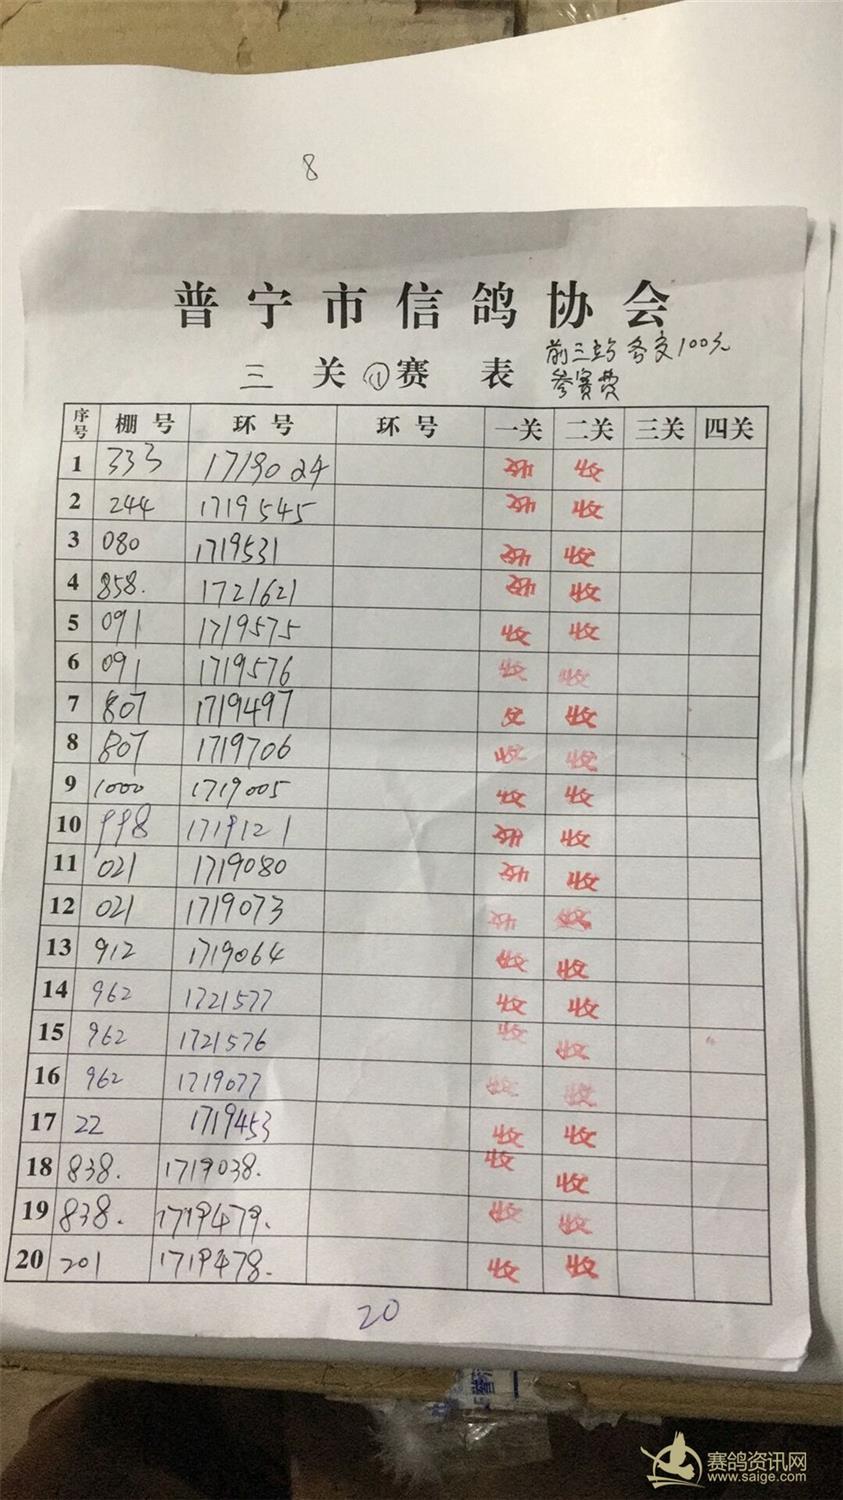 8
普宁市信鸽协会
三关①赛表 前三站各交100元
参赛费
序号 棚号 环号 环号 一关 二关 三关 四关
1 333 1719024 收 收
2 244 1719545 收 收
3 080 1719531 收 收
4 858. 1721621 收 收
5 091 1719575 收 收
6 091 1719576 收 收
7 807 1719497 收 收
8 807 1719706 收 收
9 1000 1719005 收 收
10 998 1719121 收 收
11 021 1719080 收 收
12 021 1719073 收 收
13 912 1719064 收 收
14 962 1721577 收 收
15 962 1721576 收 收
16 962 1719077 收 收
17 22 1719453 收 收
18 838. 1719038. 收 收
19 838. 1719479. 收 收
20 201 1719478. 收 收
20
赛鸽资讯网
www.saige.com